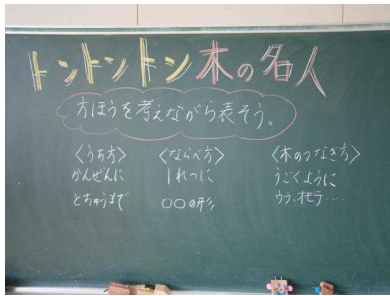 トントントン木の名人
方ほうを考えながら表そう。
〈うち方〉
かんぜんに
とちゅうまで
〈ならべ方〉
1れつに
○○の形
〈木のつなぎ方〉
うごくように
ウラ、オモテ……